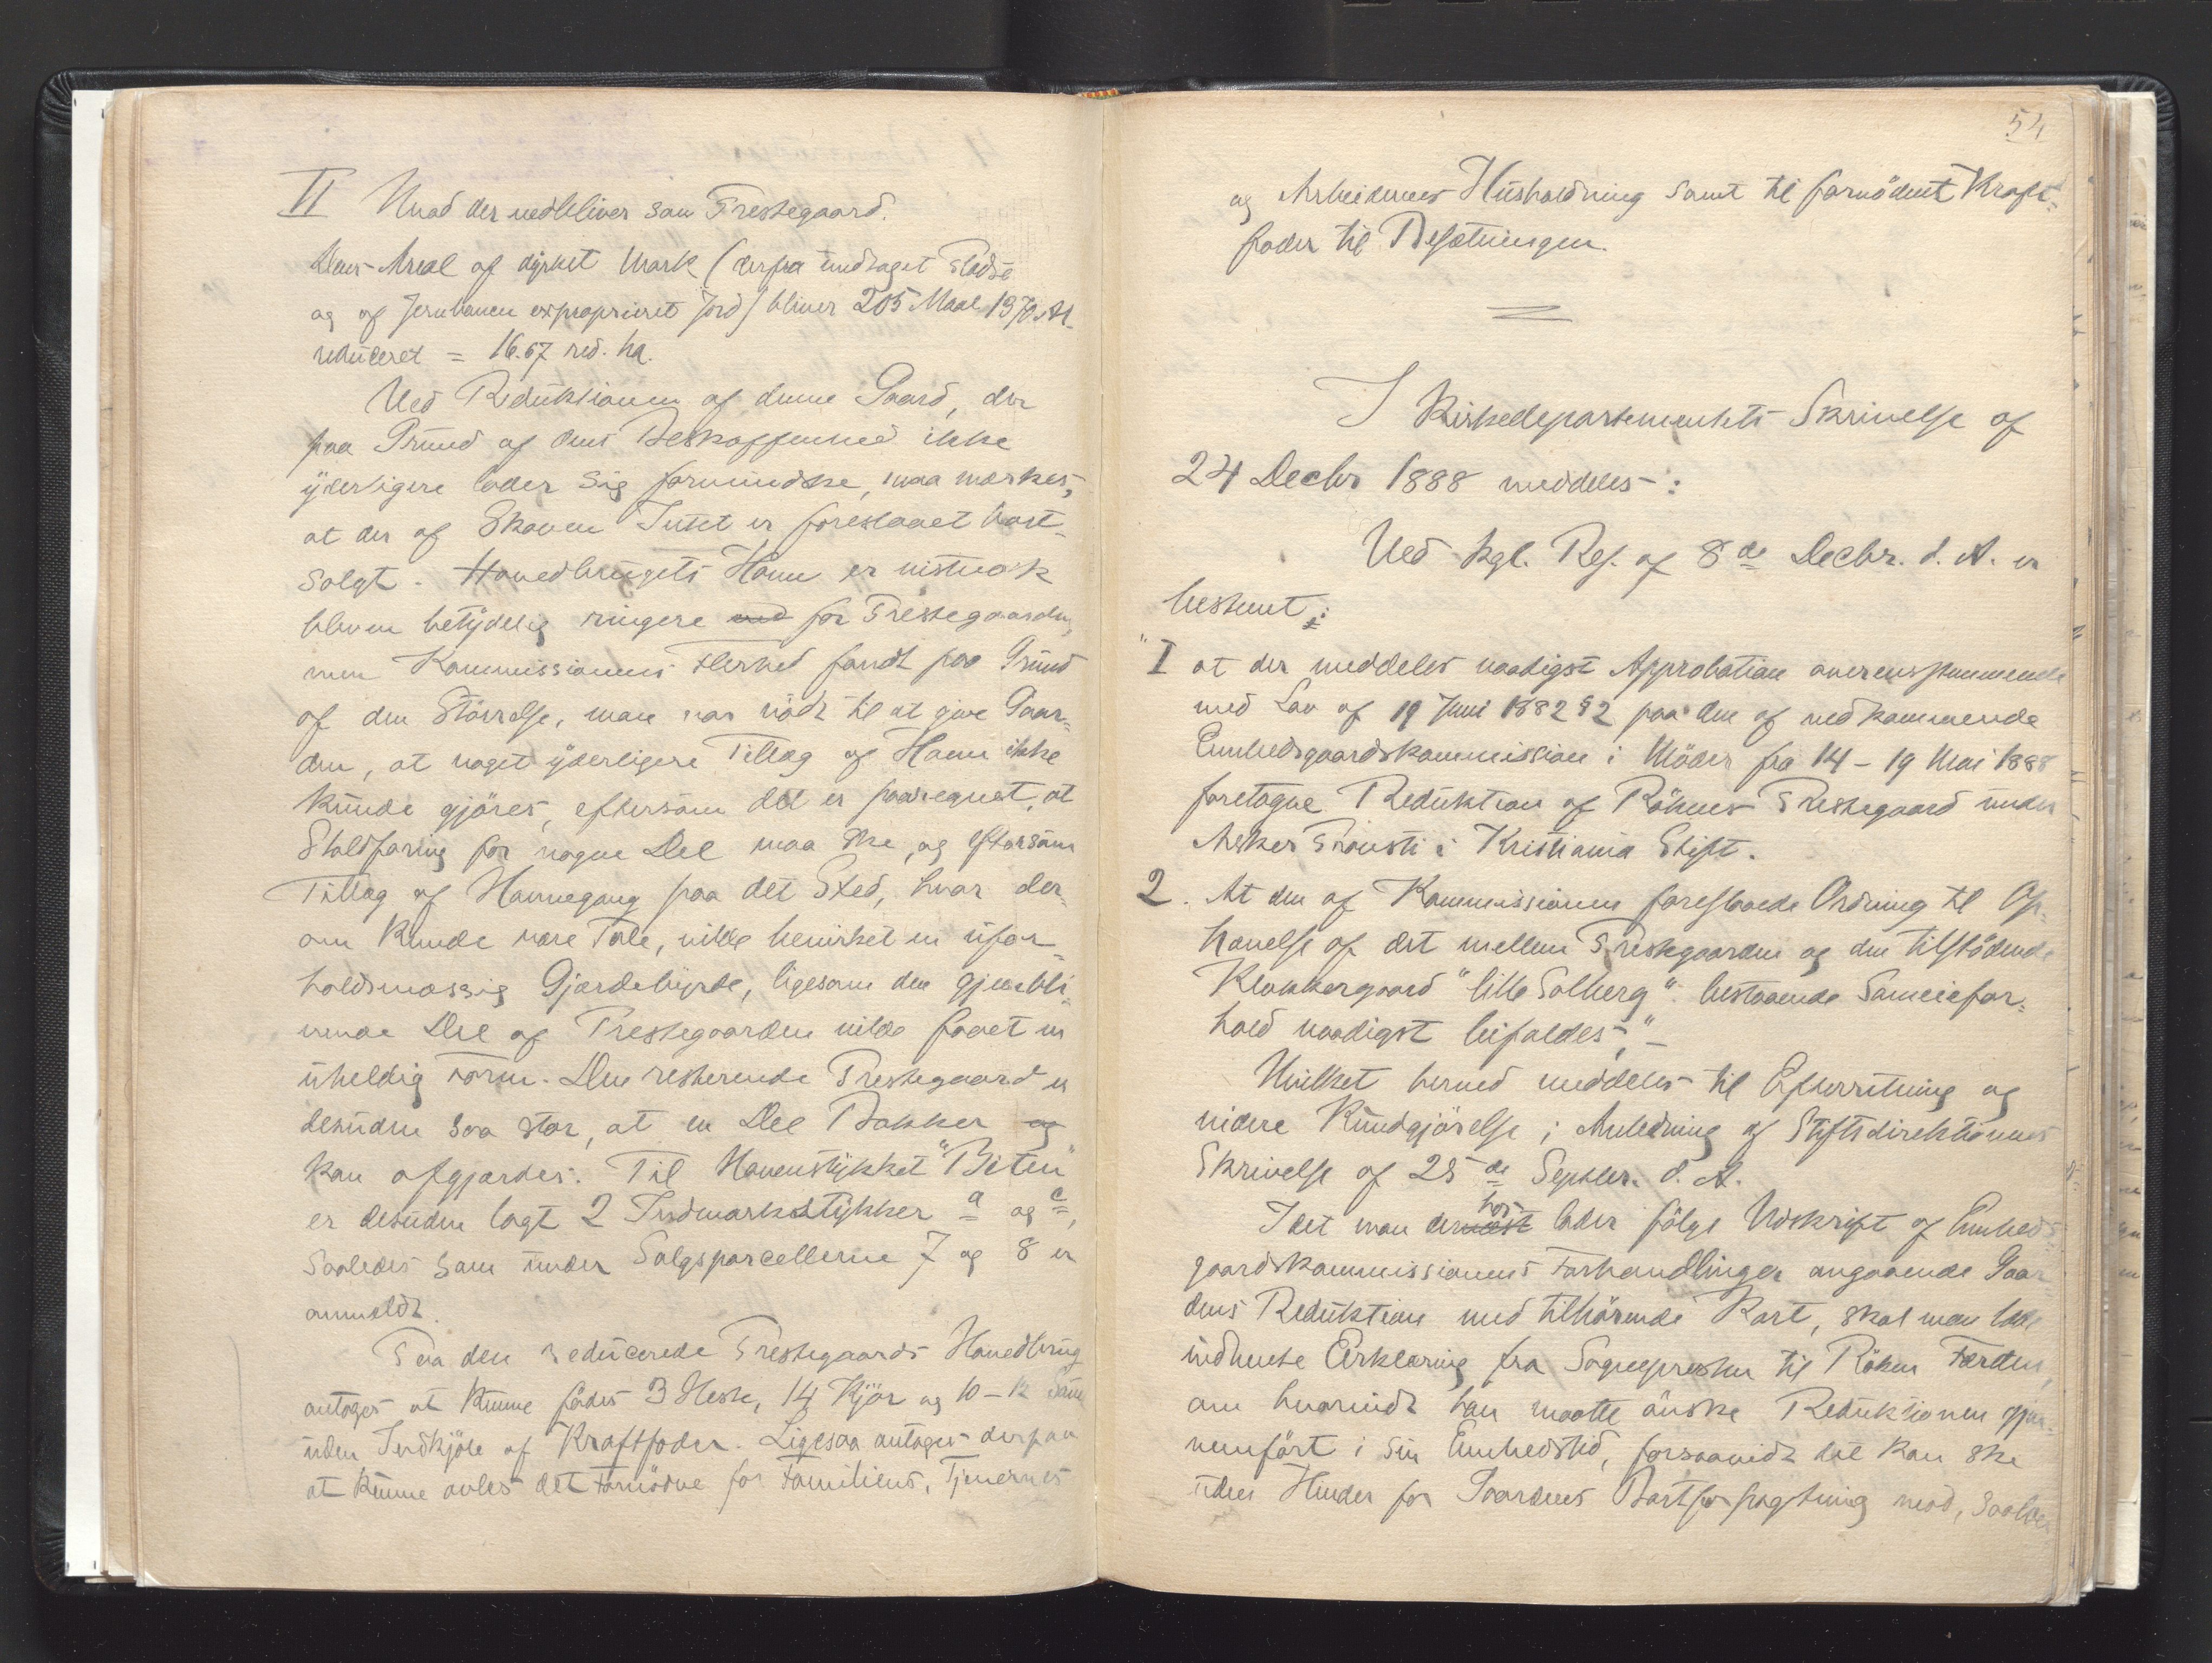 II Hvad der vedbliver som Prestegaard.
Dens Areal af dyrket Mark (derfra undtaget Pladse
og af Jernbanen exproprieret Jord) bliver 205 Maal 1370 Al.
reduceret = 16.67 red. ha.
Ved Reduktionen af denne Gaard, der
paa Grund af dens Beskaffenhed ikke
yderligere lader sig formindske, maa mærkes,
at der af Skoven Intet er foreslaaet bort-
solgt. Hovedbrugets Havn er vistnok
bleven betydelig ringere for Prestegaarden,
men Kommissionens Flerhed fandt paa Grund
af den Størrelse, man var nødt til at give Gaar-
den, at noget yderligere Tillæg af Havn ikke
kunde gjøres, eftersom det er paaregnet, at
Staldforing for nogen Del maa ske, og eftersom
Tillæg af Havnegang paa det Sted, hvor der-
om kunde være Tale, vilde bevirket en ufor-
holdsmæssig Gjærdebyrde, ligesom den gjenbli-
vende Del af Prestegaarden vilde faaet en
uheldig Form. Den resterende Prestegaard er
desuden saa stor, at en Del Bakker og
kan afgjærdes. Til Havnestykket "Biten"
er desuden lagt 2 Indmarkstykker a og c,
saaledes som under Salgsparcellerne 7 og 8 er
anmeldt.
Paa den reducerede Prestegaards Hovedbrug
antages at kunne fødes 3 Heste, 14 Kjør og 10-12 Sauer
uden Indkjøb af Kraftfoder. Ligesaa antages derpaa
at kunne avles det Fornødne for Familiens, Tjenernes
54
og Arbeidernes Husholdning samt til fornødent Kraft-
foder til Besætningen.
I Kirkedepartementets Skrivelse af
24 Decbr 1888 meddeles:
Ved kgl. Res. af 8de Decbr. d. A. er
bestemt:
"I at der meddeles naadigst Approbation overensstemmende
med Lov af 19 Juni 1882 § 2 paa den af vedkommende
Enkesgaardskommission i Møder fra 14-19 Mai 1888
foretagne Reduktion af Røkens Prestegaard under
Askers Provsti i Kristiania Stift.
2. At den af Kommissionen foreslaaede Ordning til Op-
hævelse af det mellem Prestegaarden og den tilstødende
Klokkergaard "lille Solberg" bestaaende Sameiefor-
hold naadigst bifaldes."-
Hvilket herved meddeles til Efterretning og
videre Kundgjørelse i Anledning af Stiftsdirektionens
Skrivelse af 25de Septbr. d. A.
Idet man hos lader følge Udskrift af Embeds-
gaardskommissionens Forhandlinger angaaende Gaar-
dens Reduktion med tilhørende Kart, skal man lade
indhente Erklæring fra Sognepresten til Røken Færden,
om hvorvidt han maatte ønske Reduktionen gjen-
nemført i sin Embedstid, forsaavidt det kan ske
uden Hinder for Gaardens Bortforpagtning med, saalæn